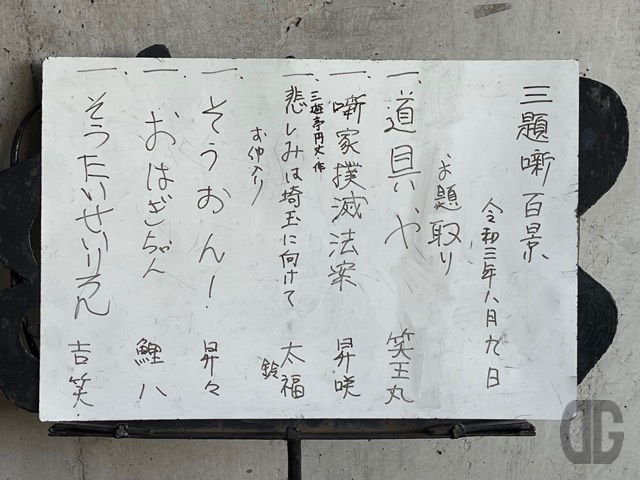 三題噺百景
令和三年八月九日
お題取り
一、道具や 笑王丸
一、噺家撲滅法案 昇咲
三遊亭円丈・作
一、悲しみは埼玉に向けて 鈴 太福
お仲入り
一、そうおん! 昇々
一、おはぎちゃん 鯉八
一、そうたいせいりろん 吉笑
DG